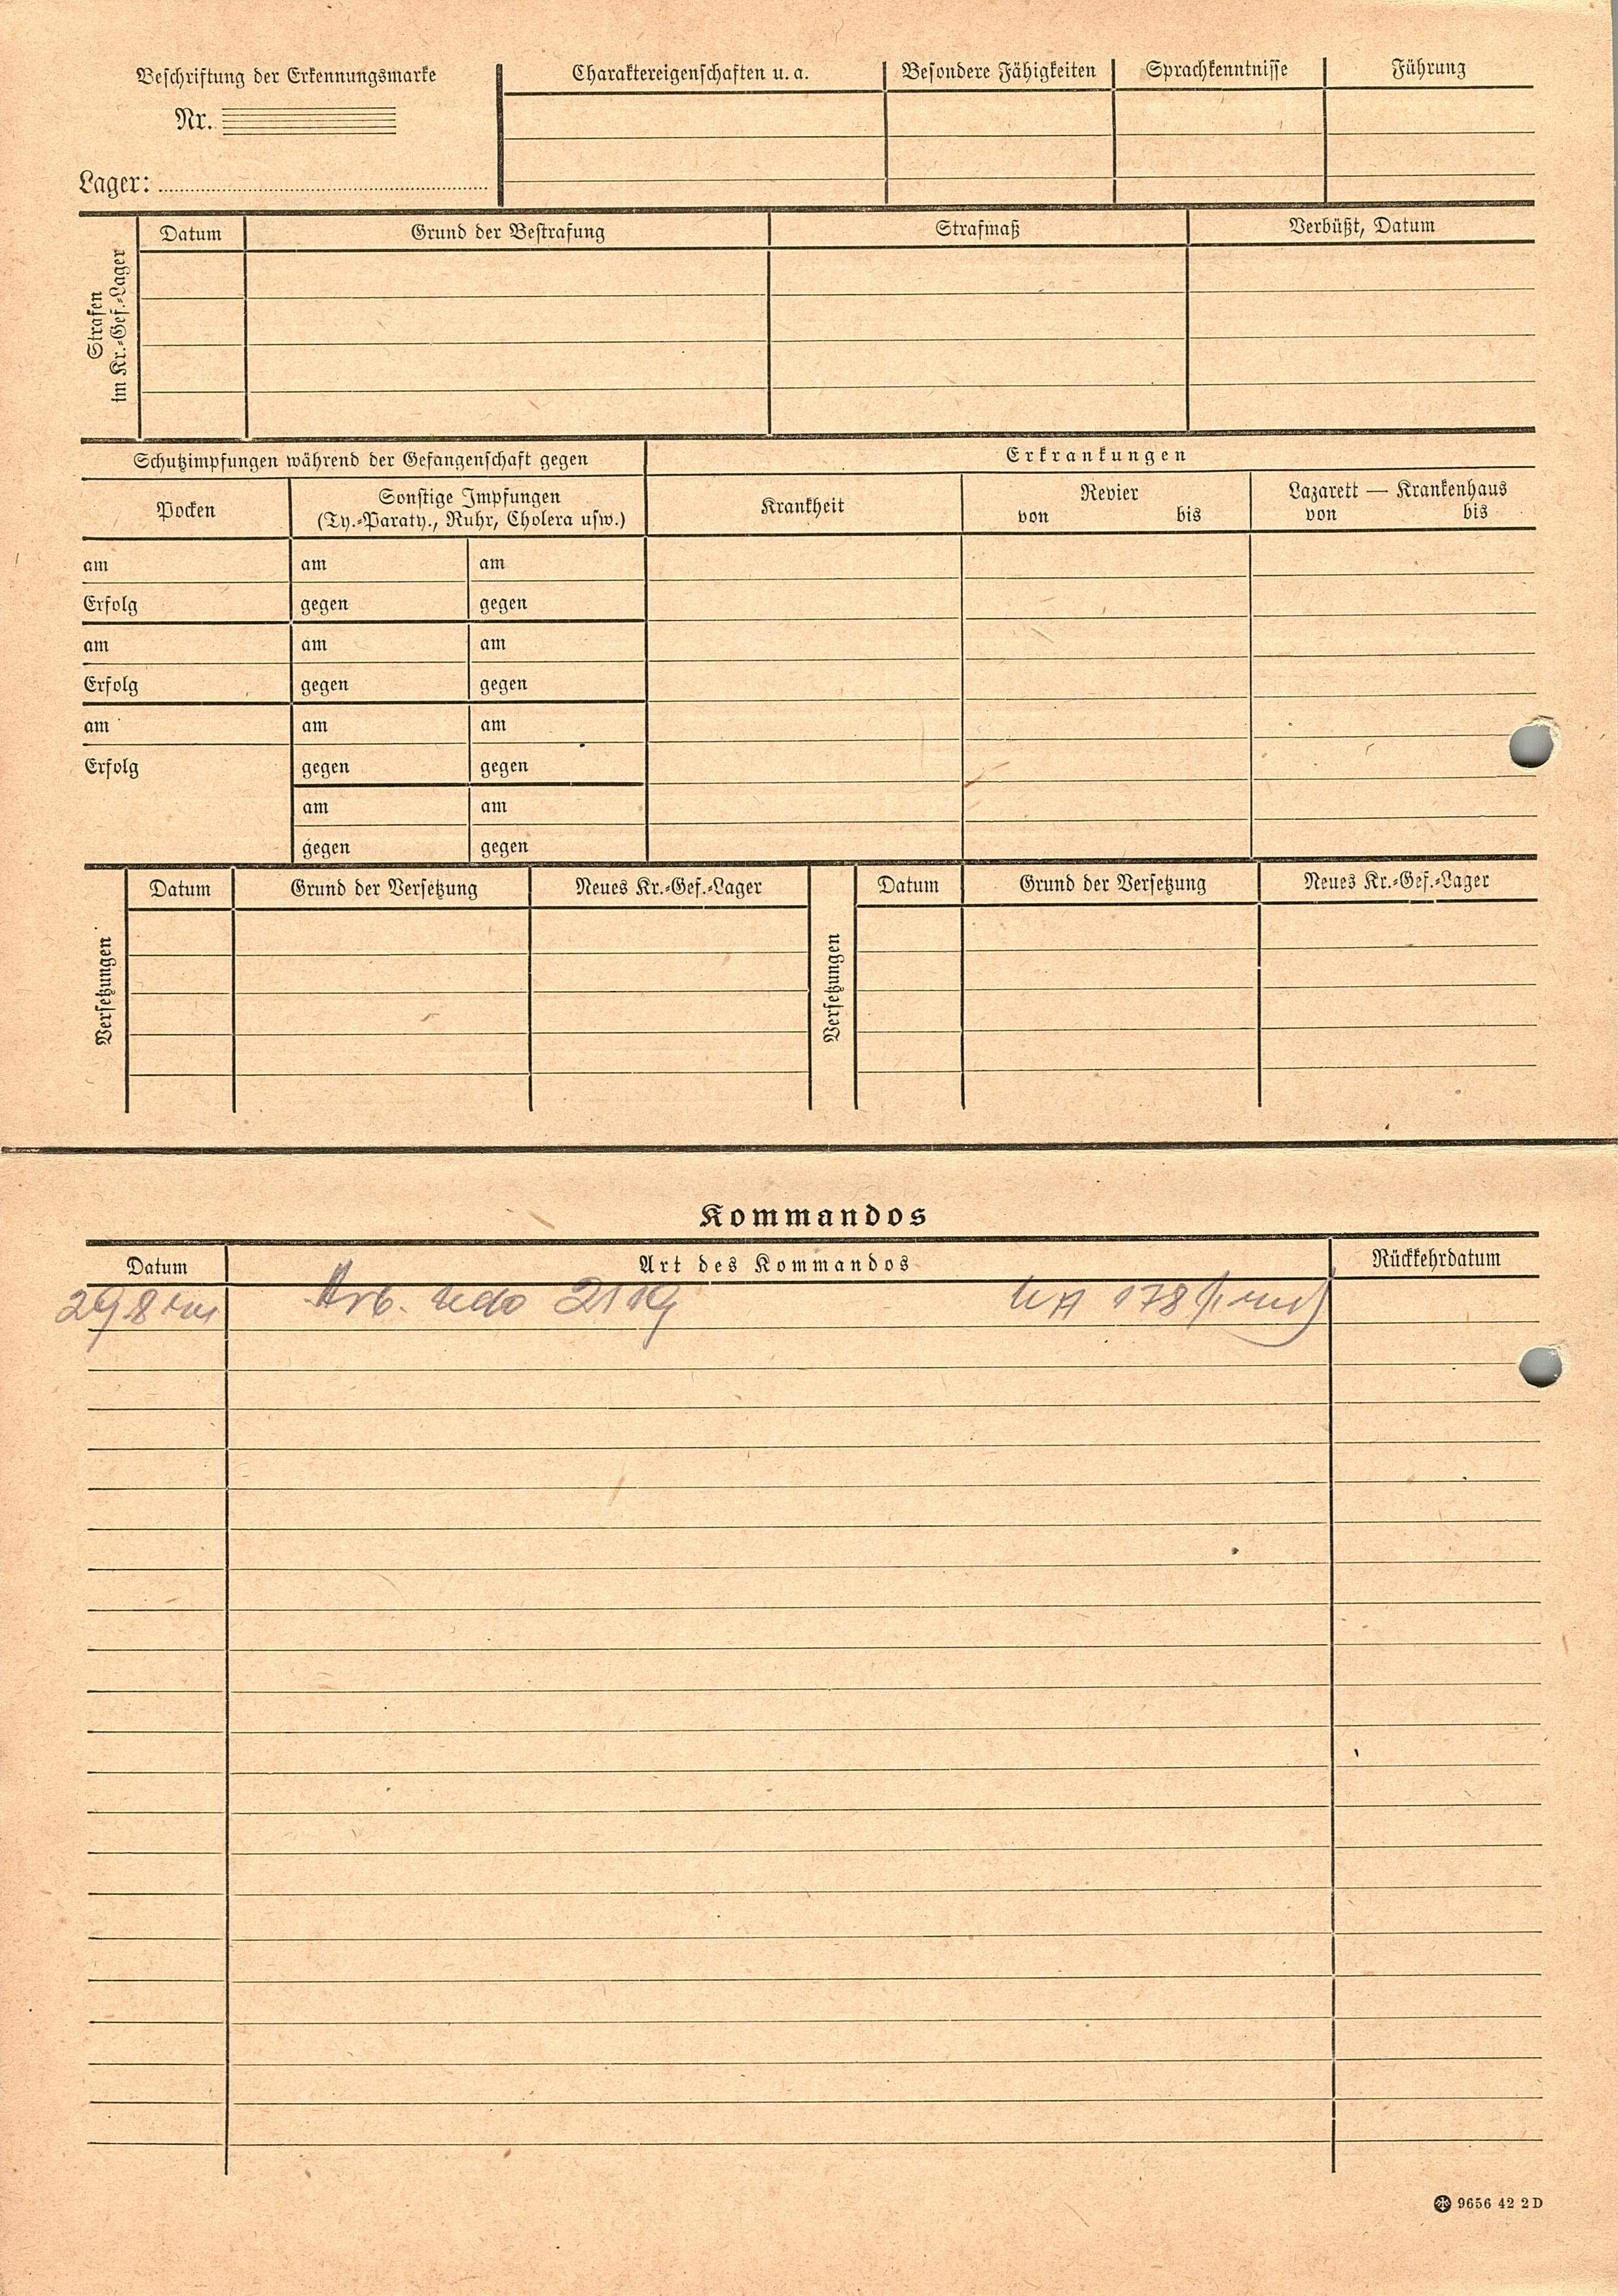 Beschriftung der Erkennungsmarke
Nr.
Lager:
Charaktereigenschaften u. a.
Besondere Fähigkeiten
Sprachkenntnisse
Führung
Strafen
im Kr.-Gef.-Lager
Datum
Grund der Bestrafung
Strafmaß
Verbüßt, Datum
Schutzimpfungen während der Gefangenschaft gegen
Erkrankungen
Pocken
Sonstige Impfungen
(Ty.-Paraty., Ruhr, Cholera usw.)
Krankheit
Revier
von bis
Lazarett — Krankenhaus
von bis
am am am
Erfolg gegen gegen
am am am
Erfolg gegen gegen
am am am
Erfolg gegen gegen
am am
gegen gegen
Versetzungen
Datum
Grund der Versetzung
Neues Kr.-Gef.-Lager
Versetzungen
Datum
Grund der Versetzung
Neues Kr.-Gef.-Lager
Kommandos
Datum
Art des Kommandos
Rückkehrdatum
29 8 Arb. Kdo 2119 178
9656 42 2 D